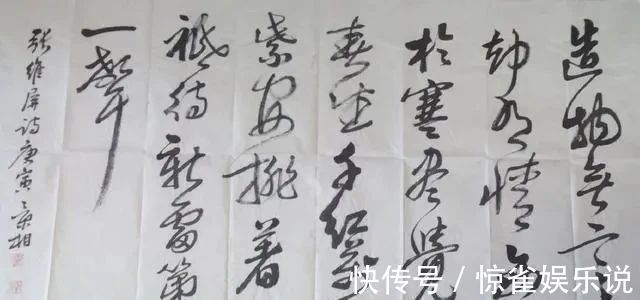 造物無言
却有情每
於寒尽覺
春生千红萬
紫安排著
祗待新雷第
一聲
张维屏诗庚寅景相
快传号 / 惊雀娱乐说